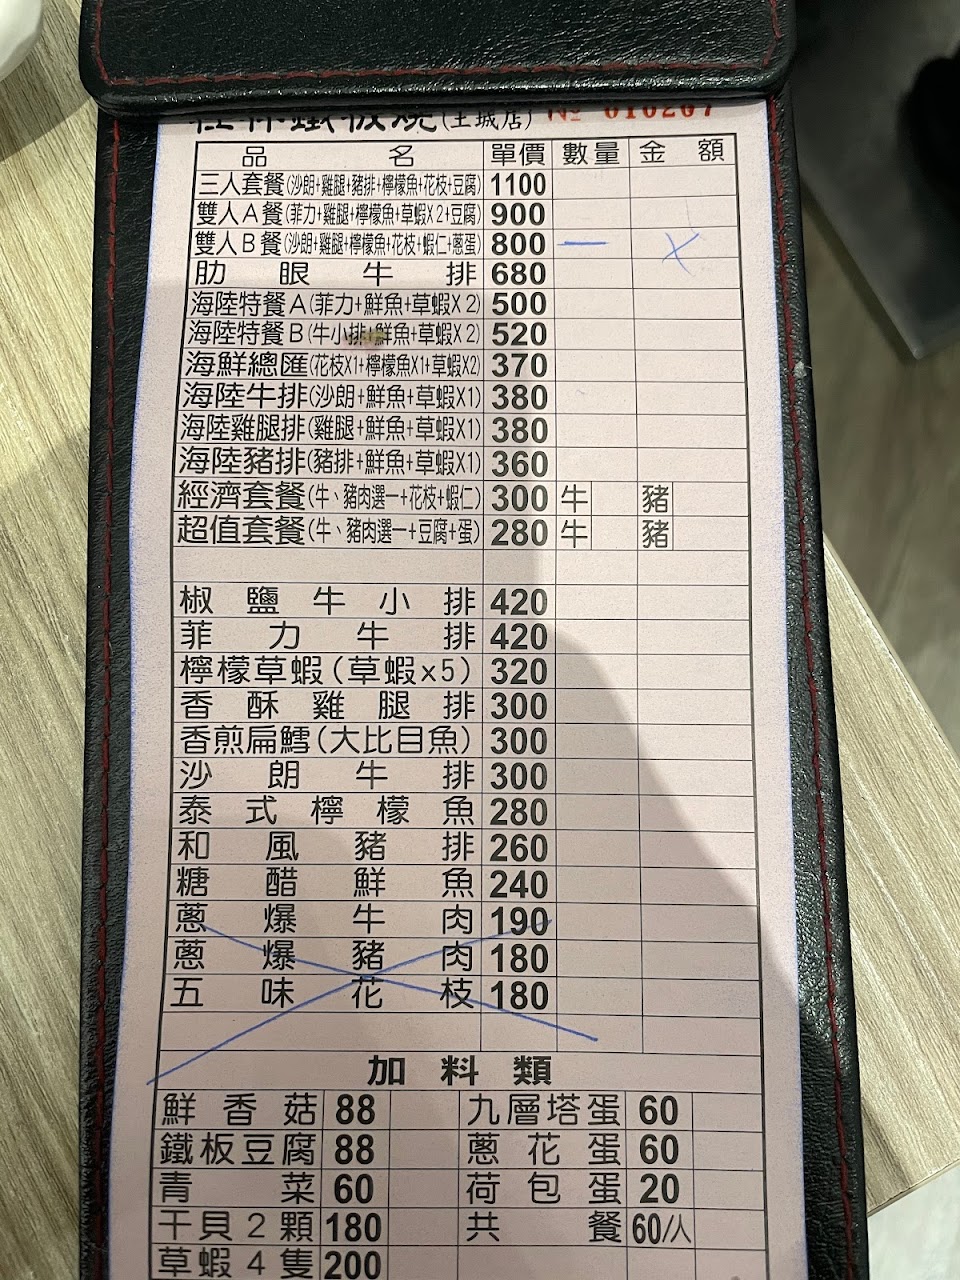 桂林鐵板燒(土城店) № 010207
品名 單價 數量 金額
三人套餐(沙朗+雞腿+豬排+檸檬魚+花枝+豆腐) 1100
雙人A餐(菲力+雞腿+檸檬魚+草蝦X2+豆腐) 900
雙人B餐(沙朗+雞腿+檸檬魚+花枝+蝦仁+蔥蛋) 800 一
肋眼牛排 680
海陸特餐A(菲力+鮮魚+草蝦X2) 500
海陸特餐B(牛小排+鮮魚+草蝦X2) 520
海鮮總匯(花枝X1+檸檬魚X1+草蝦X2) 370
海陸牛排(沙朗+鮮魚+草蝦X1) 380
海陸雞腿排(雞腿+鮮魚+草蝦X1) 380
海陸豬排(豬排+鮮魚+草蝦X1) 360
經濟套餐(牛、豬肉選一+花枝+蝦仁) 300 牛 豬
超值套餐(牛、豬肉選一+豆腐+蛋) 280 牛 豬
椒鹽牛小排 420
菲力牛排 420
檸檬草蝦(草蝦x5) 320
香酥雞腿排 300
香煎扁鱈(大比目魚) 300
沙朗牛排 300
泰式檸檬魚 280
和風豬排 260
糖醋鮮魚 240
蔥爆牛肉 190
蔥爆豬肉 180
五味花枝 180
加料類
鮮香菇 88 九層塔蛋 60
鐵板豆腐 88 蔥花蛋 60
青菜 60 荷包蛋 20
干貝2顆 180 共餐 60/人
草蝦4隻 200